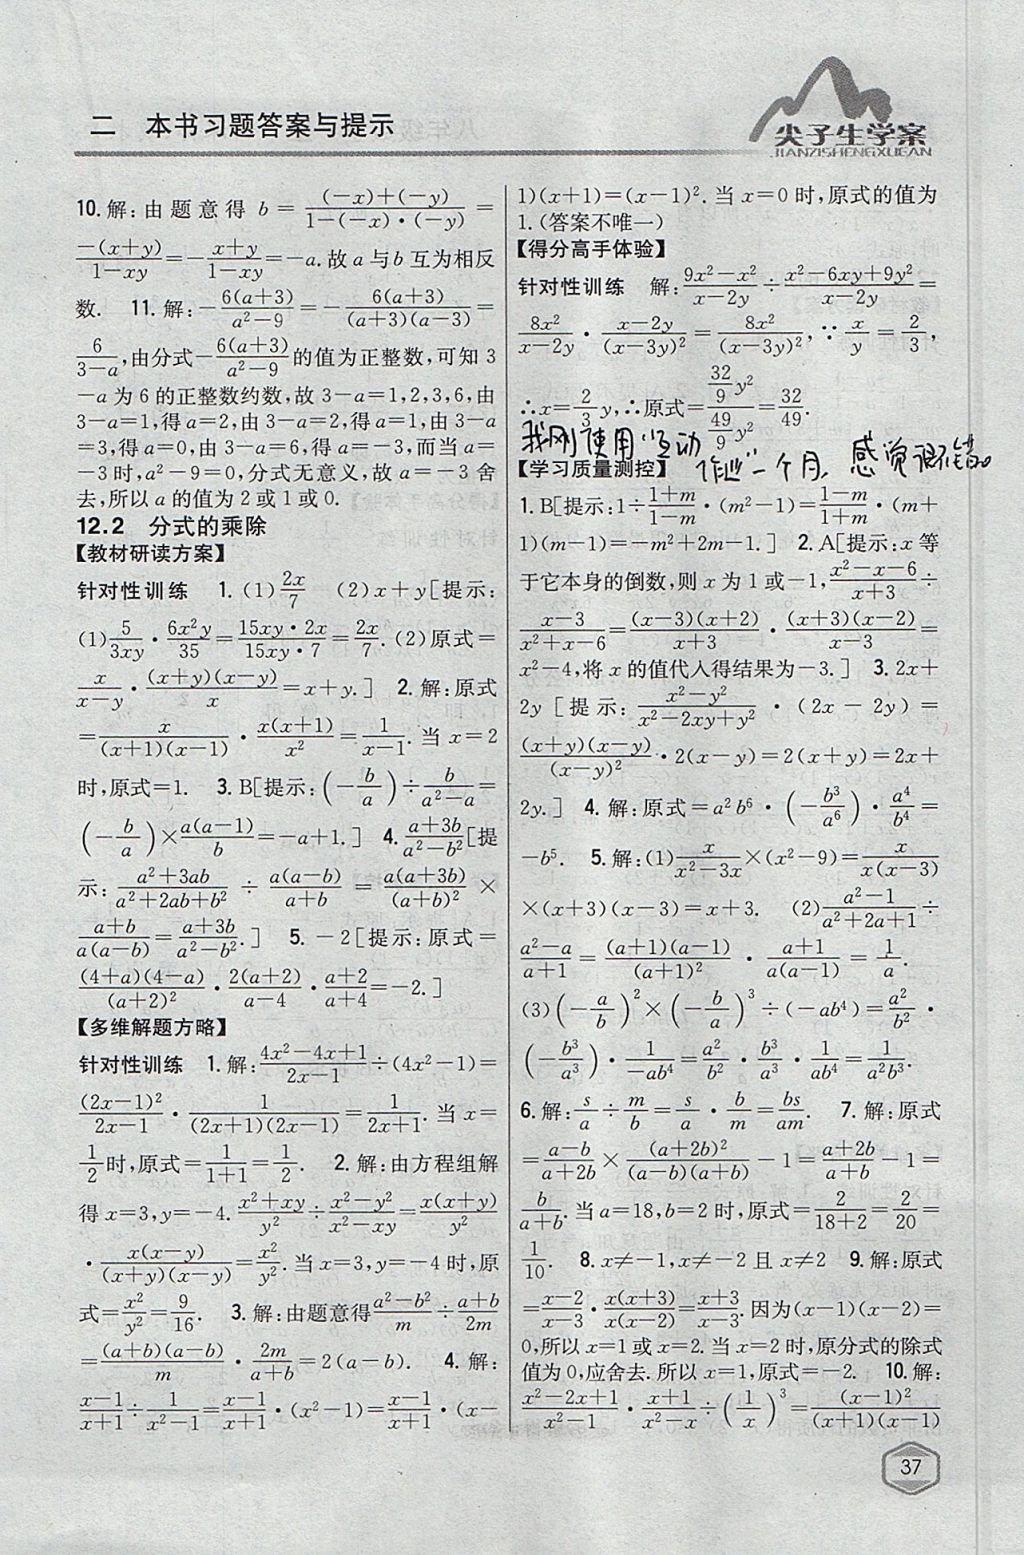 二 本书习题答案与提示
尖子生学案
JIANZISHENGXUEAN
10.解:由题意得 b=\frac{(-x)+(-y)}{1-(-x)·(-y)}=
\frac{-(x+y)}{1-xy}=-\frac{x+y}{1-xy}=-a.故a与b互为相反
数. 11.解:-\frac{6(a+3)}{a²-9}=-\frac{6(a+3)}{(a+3)(a-3)}=
\frac{6}{3-a},由分式-\frac{6(a+3)}{a²-9}的值为正整数,可知3
-a为6的正整数约数,故3-a=1,2,3,6,由
3-a=1,得a=2,由3-a=2,得a=1,由3-a
=3,得a=0,由3-a=6,得a=-3,而当a=
-3时,a²-9=0,分式无意义,故a=-3舍
去,所以a的值为2或1或0.
12.2 分式的乘除
【教材研读方案】
针对性训练 1.(1)\frac{2x}{7} (2)x+y[提示:
(1)\frac{5}{3xy}·\frac{6x²y}{35}=\frac{15xy·2x}{15xy·7}=\frac{2x}{7}.(2)原式=
\frac{x}{x-y}·\frac{(x+y)(x-y)}{x}=x+y.] 2.解:原式
=\frac{x}{(x+1)(x-1)}·\frac{x(x+1)}{x²}=\frac{1}{x-1}.当x=2
时,原式=1. 3.B[提示:(-\frac{b}{a})÷\frac{b}{a²-a}=
(-\frac{b}{a})×\frac{a(a-1)}{b}=-a+1.] 4.\frac{a+3b}{a²-b²}[提
示:\frac{a²+3ab}{a²+2ab+b²}÷\frac{a(a-b)}{a+b}=\frac{a(a+3b)}{(a+b)²}×
\frac{a+b}{a(a-b)}=\frac{a+3b}{a²-b²}.] 5.-2[提示:原式=
\frac{(4+a)(4-a)}{(a+2)²}·\frac{2(a+2)}{a-4}·\frac{a+2}{a+4}=-2.]
【多维解题方略】
针对性训练 1.解:\frac{4x²-4x+1}{2x-1}÷(4x²-1)=
\frac{(2x-1)²}{2x-1}·\frac{1}{(2x+1)(2x-1)}=\frac{1}{2x+1}.当x=
\frac{1}{2}时,原式=\frac{1}{1+1}=\frac{1}{2}. 2.解:由方程组解
得x=3,y=-4.\frac{x²+xy}{y²}÷\frac{x²-y²}{x²-xy}=\frac{x(x+y)}{y²}
·\frac{x(x-y)}{(x+y)(x-y)}=\frac{x²}{y²}.当x=3,y=-4时,原
式=\frac{x²}{y²}=\frac{9}{16}. 3.解:由题意得\frac{a²-b²}{m}÷\frac{a+b}{2m}
=\frac{(a+b)(a-b)}{m}·\frac{2m}{a+b}=2(a-b). 4.解:
\frac{x-1}{x+1}÷\frac{1}{x²-1}=\frac{x-1}{x+1}·(x²-1)=\frac{x-1}{x+1}·(x-
1)(x+1)=(x-1)².当x=0时,原式的值为
1.(答案不唯一)
【得分高手体验】
针对性训练 解:\frac{9x²-x²}{x-2y}÷\frac{x²-6xy+9y²}{x-2y}=
\frac{8x²}{x-2y}·\frac{x-2y}{(x-3y)²}=\frac{8x²}{(x-3y)²},∵\frac{x}{y}=\frac{2}{3},
∴x=\frac{2}{3}y,∴原式=\frac{\frac{32}{9}y²}{\frac{49}{9}y²}=\frac{32}{49}.
我刚使用"互动作业"一个月,感觉很不错。
【学习质量测控】
1.B[提示:1÷\frac{1+m}{1-m}·(m²-1)=\frac{1-m}{1+m}·(m+
1)(m-1)=-m²+2m-1.] 2.A[提示:x等
于它本身的倒数,则x为1或-1,\frac{x²-x-6}{x+3}÷
\frac{x-3}{x²+x-6}=\frac{(x-3)(x+2)}{x+3}·\frac{(x+3)(x-2)}{x-3}=
x²-4,将x的值代入得结果为-3.] 3.2x+
2y[提示:\frac{x²-y²}{x²-2xy+y²}·(2x-2y)=
\frac{(x+y)(x-y)}{(x-y)²}·2(x-y)=2(x+y)=2x+
2y.] 4.解:原式=a²b⁶·(-\frac{b³}{a⁶})·\frac{a⁴}{b⁴}=
-b⁵. 5.解:(1)\frac{x}{x²-3x}×(x²-9)=\frac{x}{x(x-3)}
×(x+3)(x-3)=x+3. (2)\frac{a²-1}{a²+2a+1}÷
\frac{a²-a}{a+1}=\frac{(a+1)(a-1)}{(a+1)²}·\frac{a+1}{a(a-1)}=\frac{1}{a}.
(3)(-\frac{a}{b})²×(-\frac{b}{a})³÷(-ab⁴)=\frac{a²}{b²}·
(-\frac{b³}{a³})·\frac{1}{-ab⁴}=\frac{a²}{b²}·\frac{b³}{a³}·\frac{1}{ab⁴}=\frac{1}{a²b³}.
6.解:\frac{s}{a}÷\frac{m}{b}=\frac{s}{a}·\frac{b}{m}=\frac{bs}{am}. 7.解:原式
=\frac{a-b}{a+2b}×\frac{(a+2b)²}{(a-b)(a+b)}-1=\frac{a+2b}{a+b}-1=
\frac{b}{a+b}.当a=18,b=2时,原式=\frac{2}{18+2}=\frac{2}{20}=
\frac{1}{10}. 8.x≠-1,x≠-2且x≠2 9.解:原式
=\frac{x-2}{x-3}·\frac{x(x+3)}{x(x-2)}=\frac{x+3}{x-3}.因为(x-1)(x-2)=
0,所以x=1或x=2.当x=2时,原分式的除式
值为0,应舍去.所以x=1,原式=-2. 10.解:
\frac{x²-2x+1}{x²-1}·\frac{x+1}{x²-x}÷(\frac{1}{x})³=\frac{(x-1)²}{(x+1)(x-1)}
37